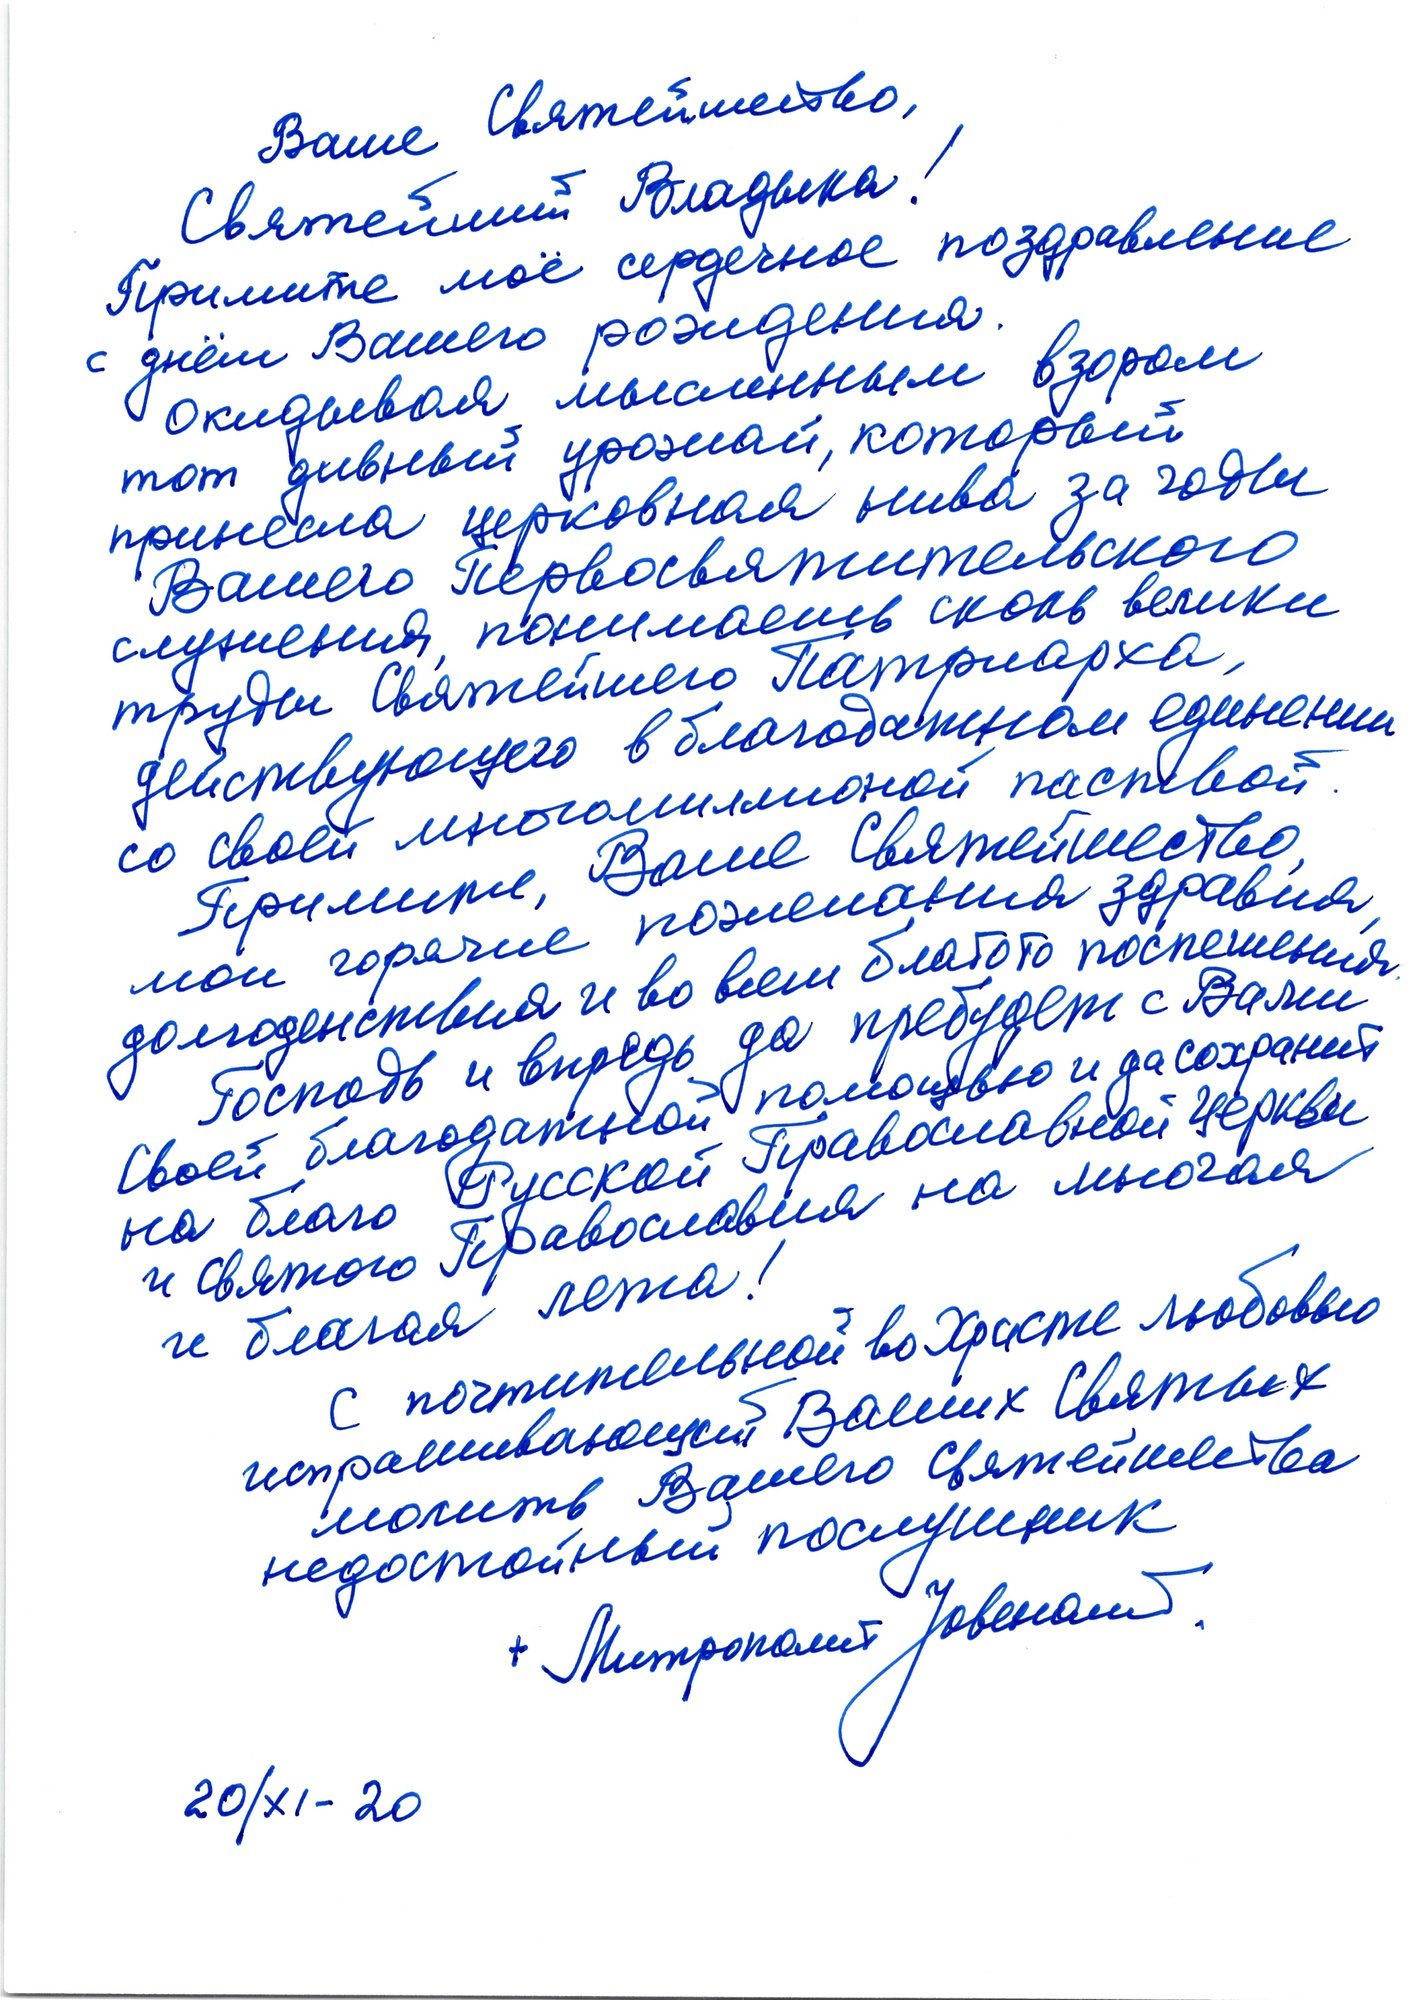 Ваше Святейшество,
Святейший Владыка!
Примите моё сердечное поздравление
с днём Вашего рождения.
Окидывая мысленным взором
тот дивный урожай, который
принесла церковная нива за годы
Вашего Первосвятительского
служения, понимаешь сколь велики
труды Святейшего Патриарха,
действующего в благодатном единении
со своей многомиллионой паствой.
Примите, Ваше Святейшество,
мои горячие пожелания здравия,
долгоденствия и во всем благого поспешения.
Господь и впредь да пребудет с Вами
Своей благодатной помощью и да сохранит
на благо Русской Православной Церкви
и святого Православия на многая
и благая лета!
С почтительной во Христе любовью
испрашивающий Ваших Святых
молитв Вашего Святейшества
недостойный послушник
+ Митрополит Ювеналий.
20/XI-20